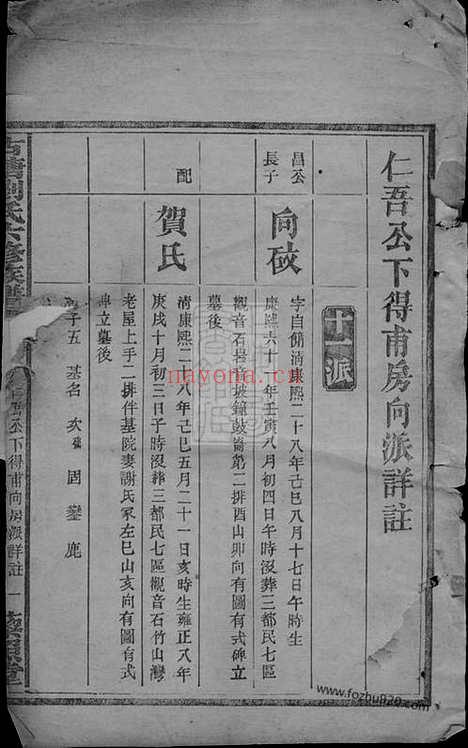 仁吾公下得甫房向派詳註
十一派
昌公長子
向破
字自飾清康熙二十八年己巳八月十七日午時生
康熙六十一年壬寅八月初四日午時沒葬三都民七區
觀音石岩初坡鐘鼓崙第二排酉山卯向有圖有式碑立
墓後
配
賀氏
清康熙二十八年己巳五月二十一日亥時生雍正八年
庚戌十月初三日子時沒葬三都民七區觀音石竹山灣
老屋上手二排伴基院妻謝氏冢左巳山亥向有圖有式
碑立墓後
子五 基名 次 固 鑾 鹿
古塘劉氏六修族譜
仁吾公下得甫向房派詳註
一
www.fozhu920.com
nayona.cn